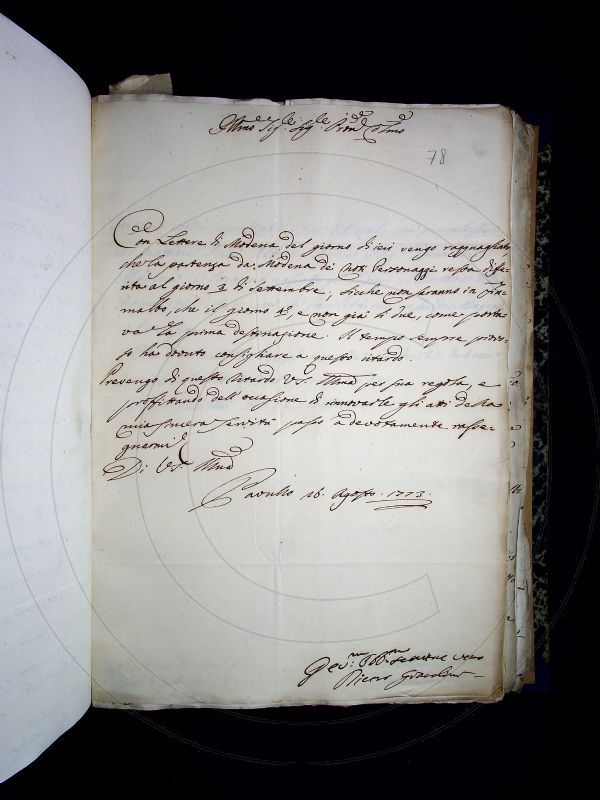 Illmo Sig.re Sig.re Pron. Colmo
78
Con Lettere di Modena del giorno di ieri vengo ragguagliato,
che la partenza da Modena dei Noti Personaggi resta diffe-
rita al giorno 2 di Settembre, sicche non saranno in Fiu-
malbo, che il giorno 4º, e non già di due, come porta-
va la prima destinazione. Il tempo sempre piovo-
so ha dovuto consigliare a questo ritardo.
Prevengo di questo ritardo VS. Illma per sua regola, e
profittando dell'occasione di rinnovarle gli atti della
mia sincera servitù passo a devotamente rasse-
gnarmi
Di VS. Illma
Pavullo 26. Agosto. 1773.
Dev.mo Obb.mo Servitore vero
Pietro